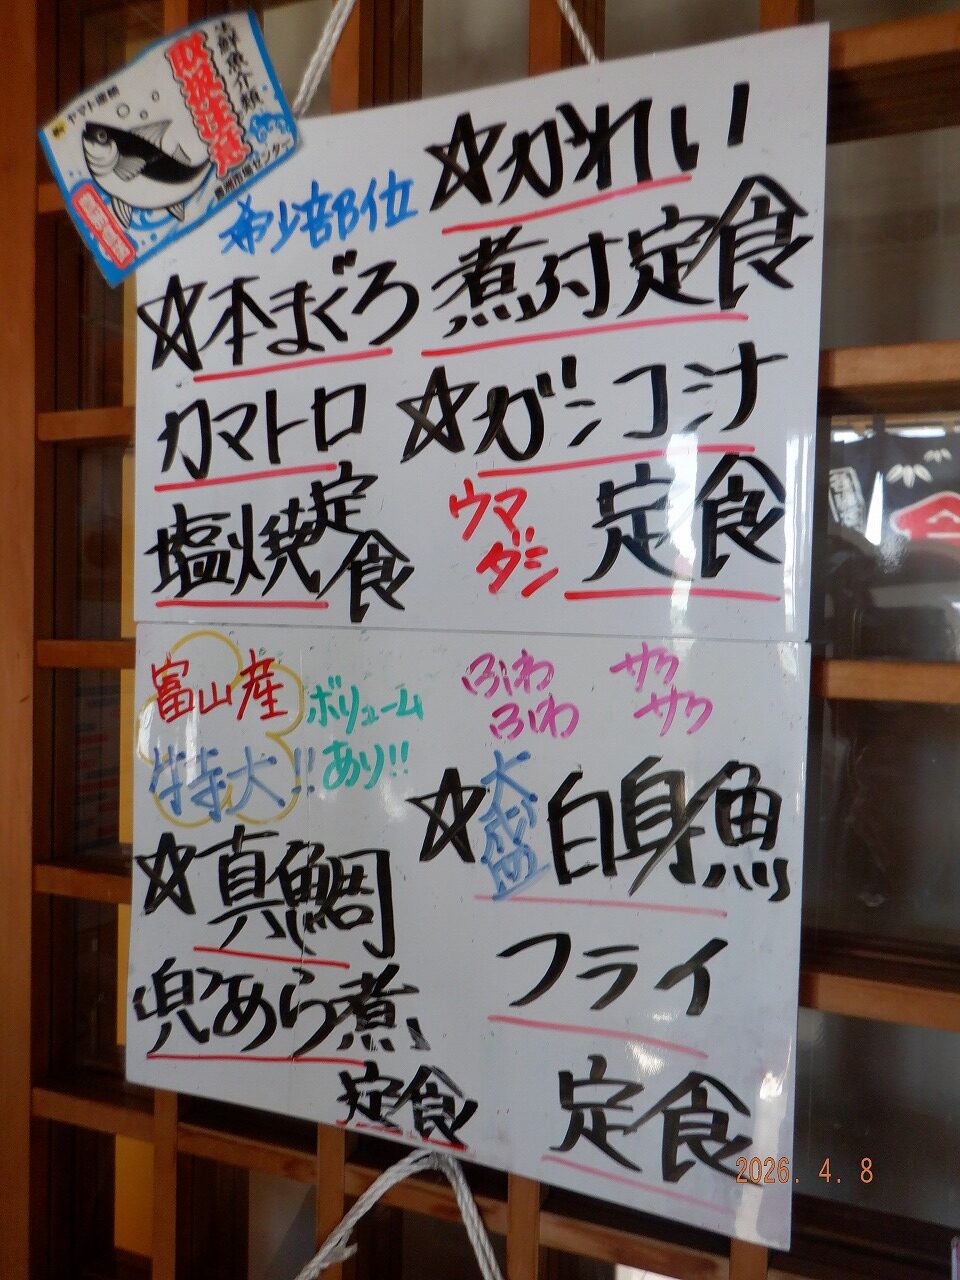 ☆かれい
煮付定食
☆ガシコミナ
ウマ
ダシ
定食
希少部位
☆本まぐろ
カマトロ
塩焼定
食
ふわ
ふわ
サク
サク
☆大
白身魚
フライ
定食
富山産
特大!!
ボリューム
あり!!
☆真鯛
兜あら煮
定食
生鮮魚介類
取扱注意
ヤマト運輸
2026. 4. 8